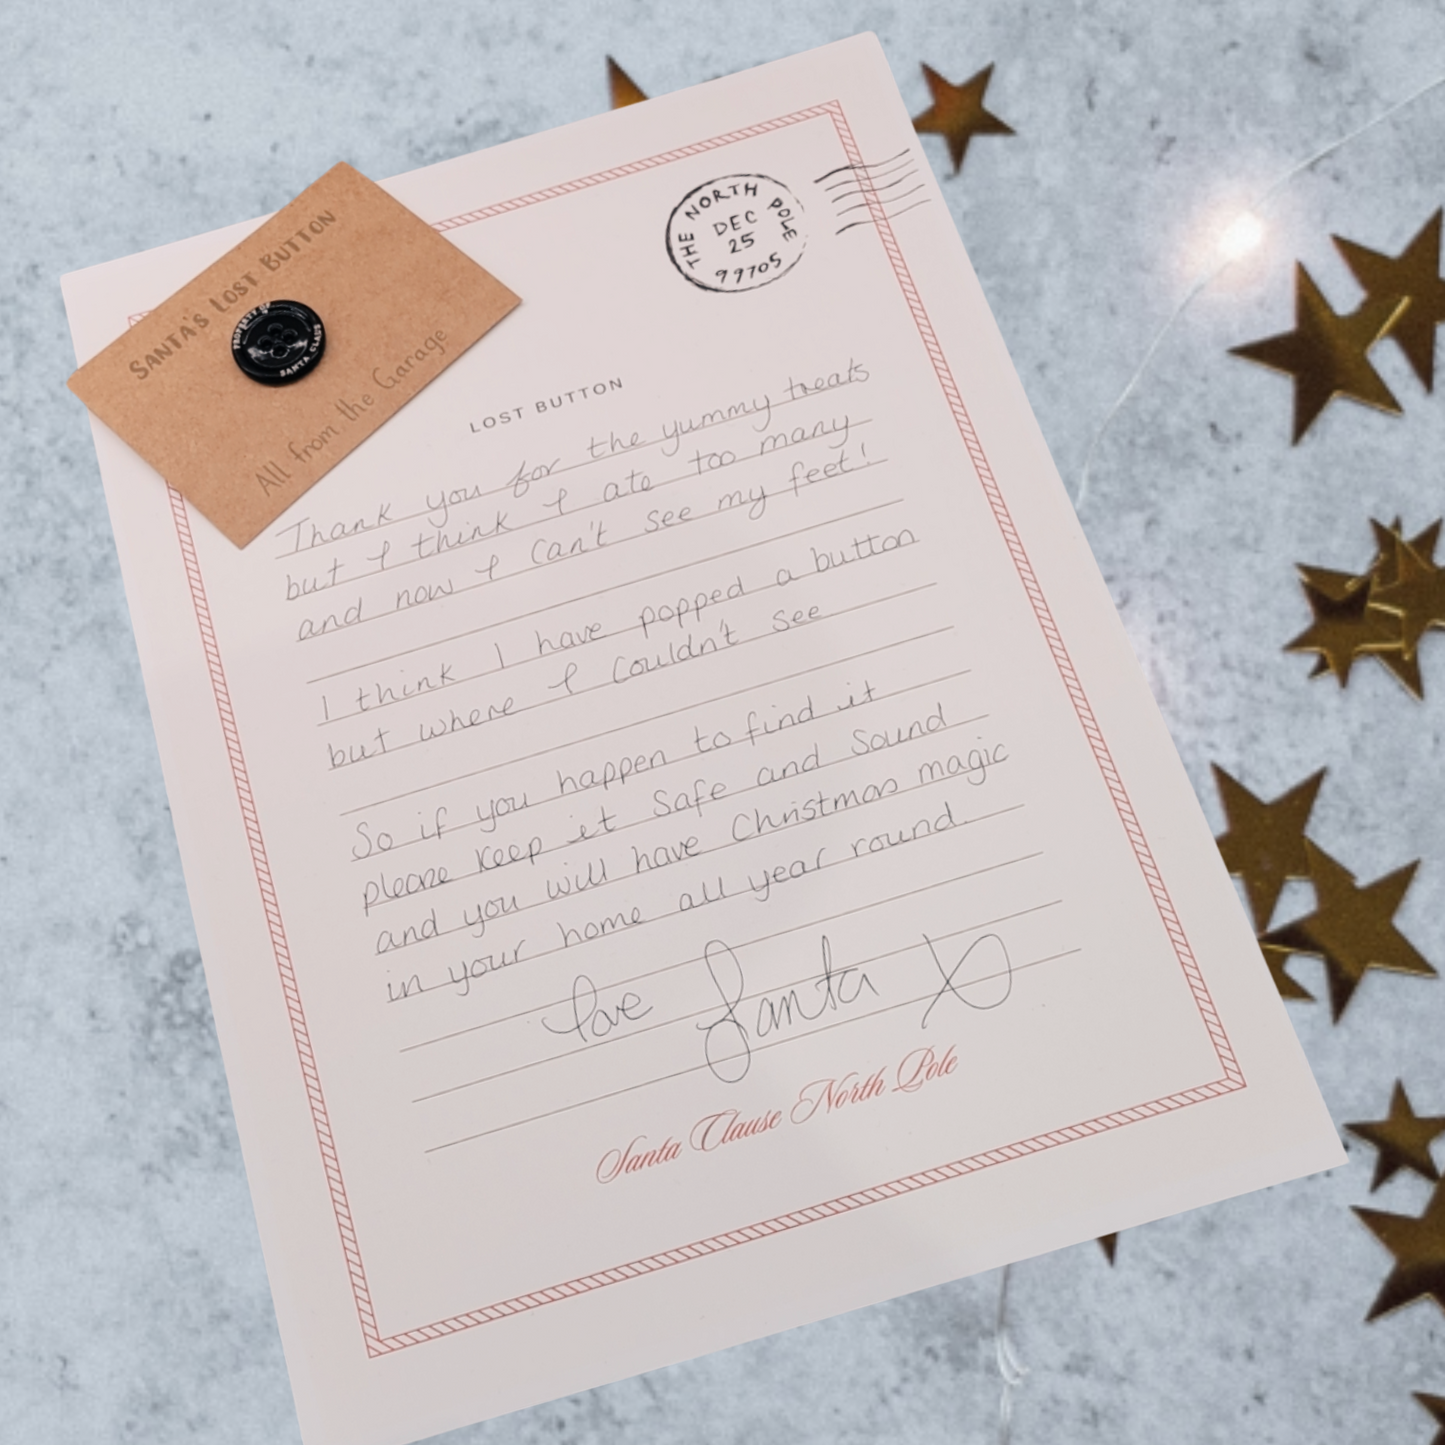 SANTA'S LOST BUTTON
PROPERTY OF
SANTA CLAUS
All from the Garage
THE NORTH POLE
DEC
25
99705
LOST BUTTON
Thank you for the yummy treats
but I think I ate too many
and now I can't see my feet!
I think I have popped a button
but where I couldn't see
So if you happen to find it
please keep it safe and sound
and you will have Christmas magic
in your home all year round.
love Santa X
Santa Clause North Pole